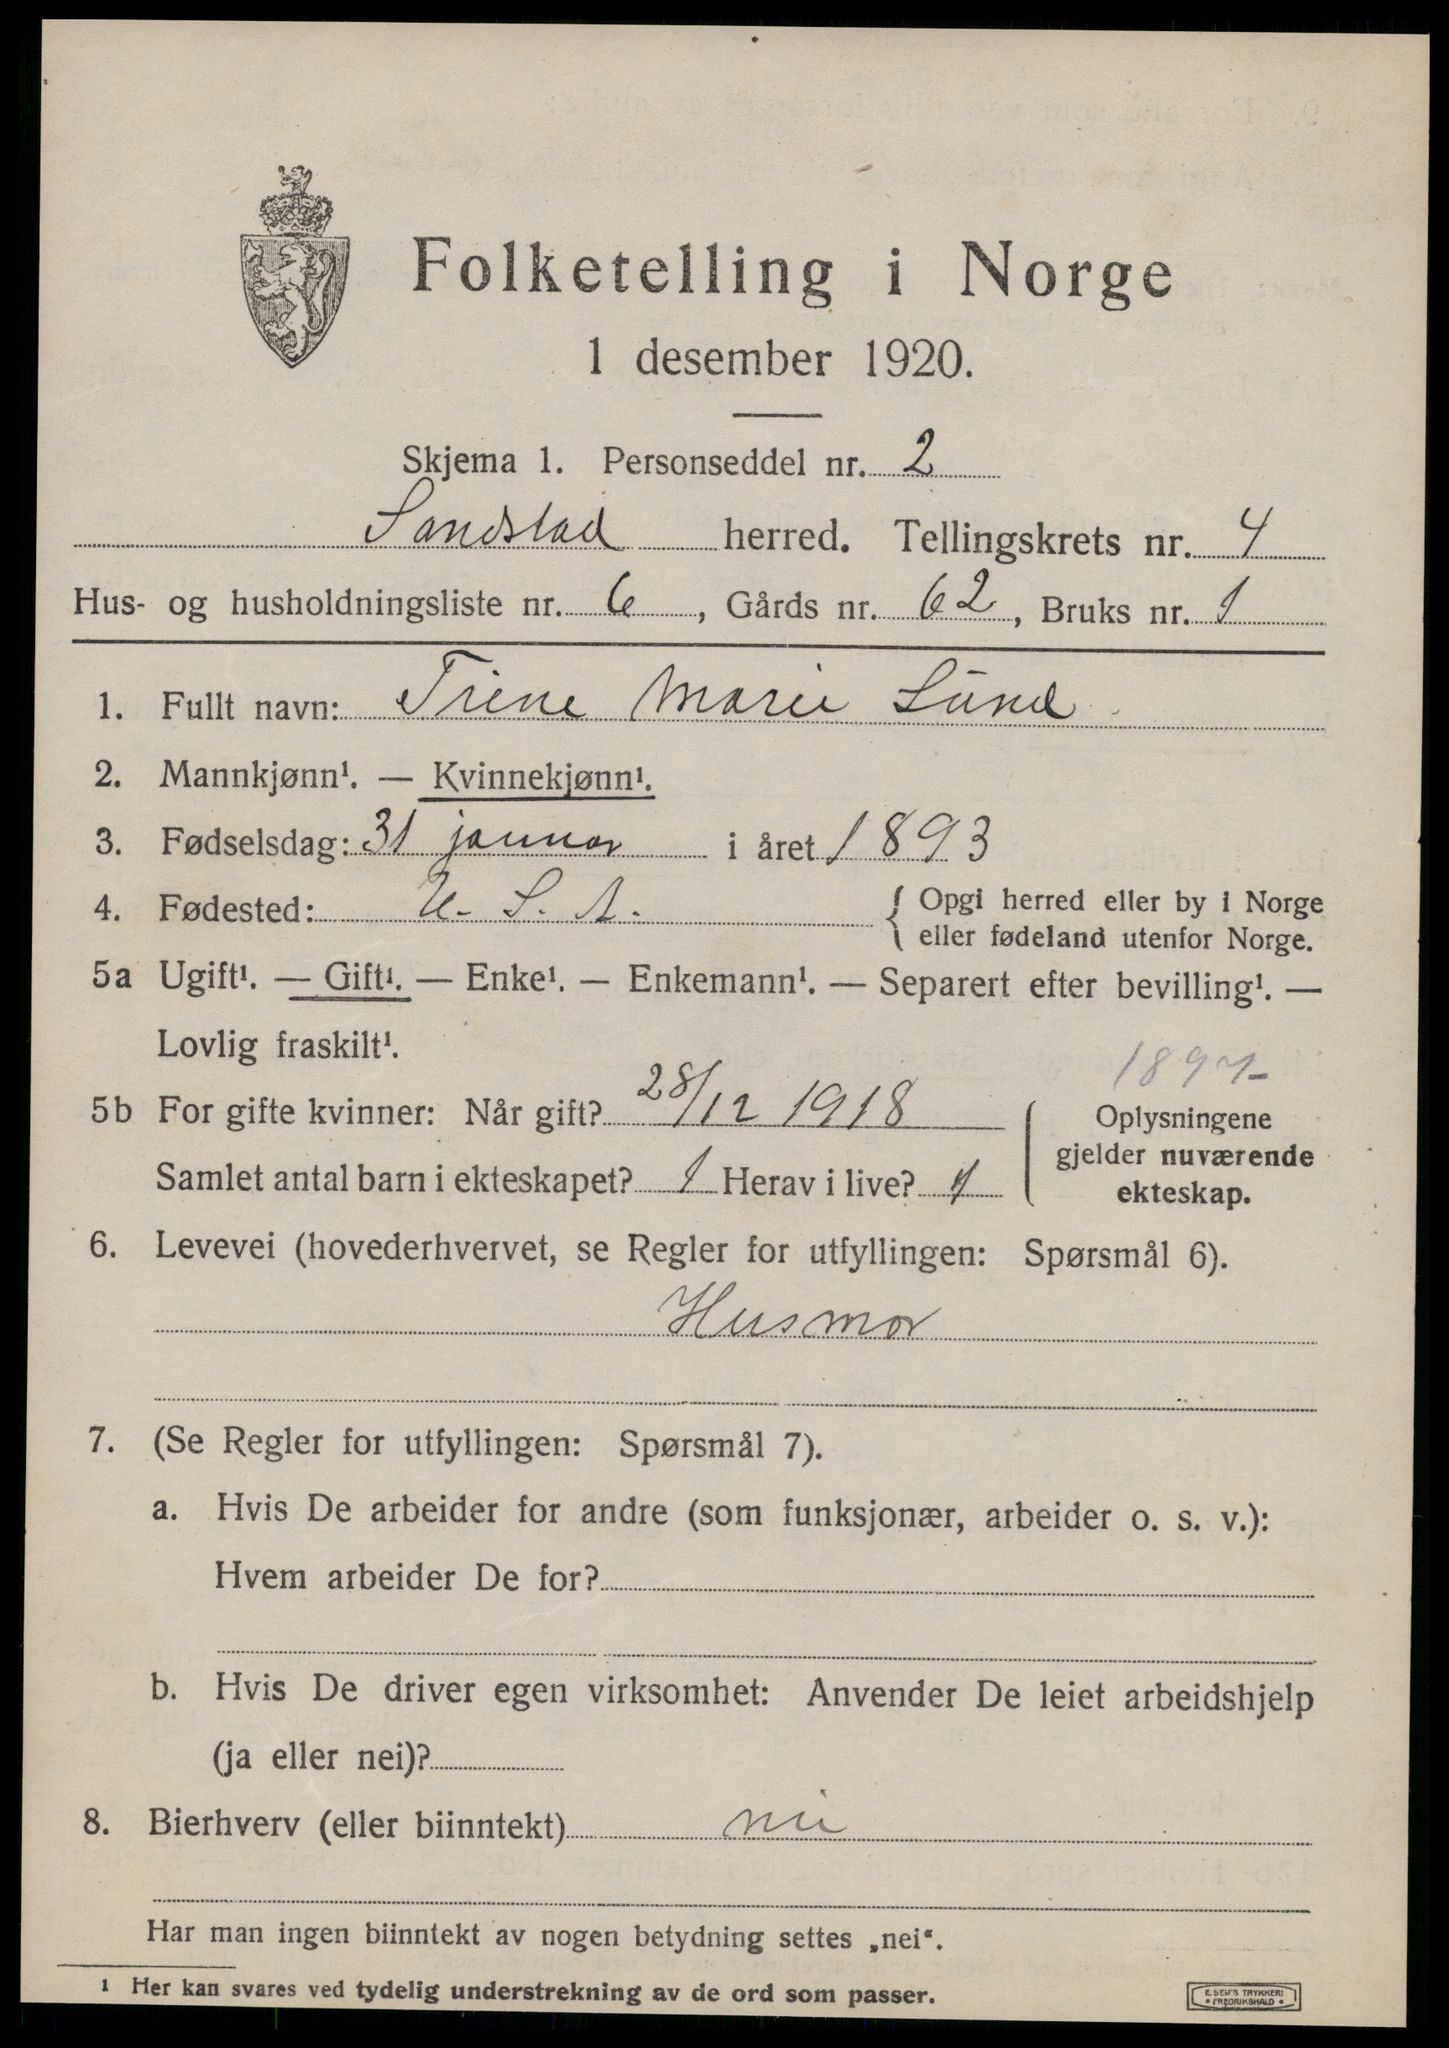 Folketelling i Norge
1 desember 1920.
Skjema 1. Personseddel nr. 2
Sandstad herred. Tellingskrets nr. 4
Hus- og husholdningsliste nr. 6, Gårds nr. 62, Bruks nr. 1
1. Fullt navn: Trine Marie Lund
2. Mannkjønn¹. — Kvinnekjønn¹.
3. Fødselsdag: 31 januar i året 1893
4. Fødested: U. S. A. { Opgi herred eller by i Norge
eller fødeland utenfor Norge.
5a Ugift¹. — Gift¹. — Enke¹. — Enkemann¹. — Separert efter bevilling¹. —
Lovlig fraskilt¹.
5b For gifte kvinner: Når gift? 28/12 1918
Samlet antal barn i ekteskapet? 1 Herav i live? 1
Oplysningene
gjelder nuværende
ekteskap.
6. Levevei (hovederhvervet, se Regler for utfyllingen: Spørsmål 6).
Husmor
7. (Se Regler for utfyllingen: Spørsmål 7).
a. Hvis De arbeider for andre (som funksjonær, arbeider o. s. v.):
Hvem arbeider De for?
b. Hvis De driver egen virksomhet: Anvender De leiet arbeidshjelp
(ja eller nei)?
8. Bierhverv (eller biinntekt) nei
Har man ingen biinntekt av nogen betydning settes „nei“.
1 Her kan svares ved tydelig understrekning av de ord som passer.
E. SEM'S TRYKKERI
• FREDRIKSHALD •